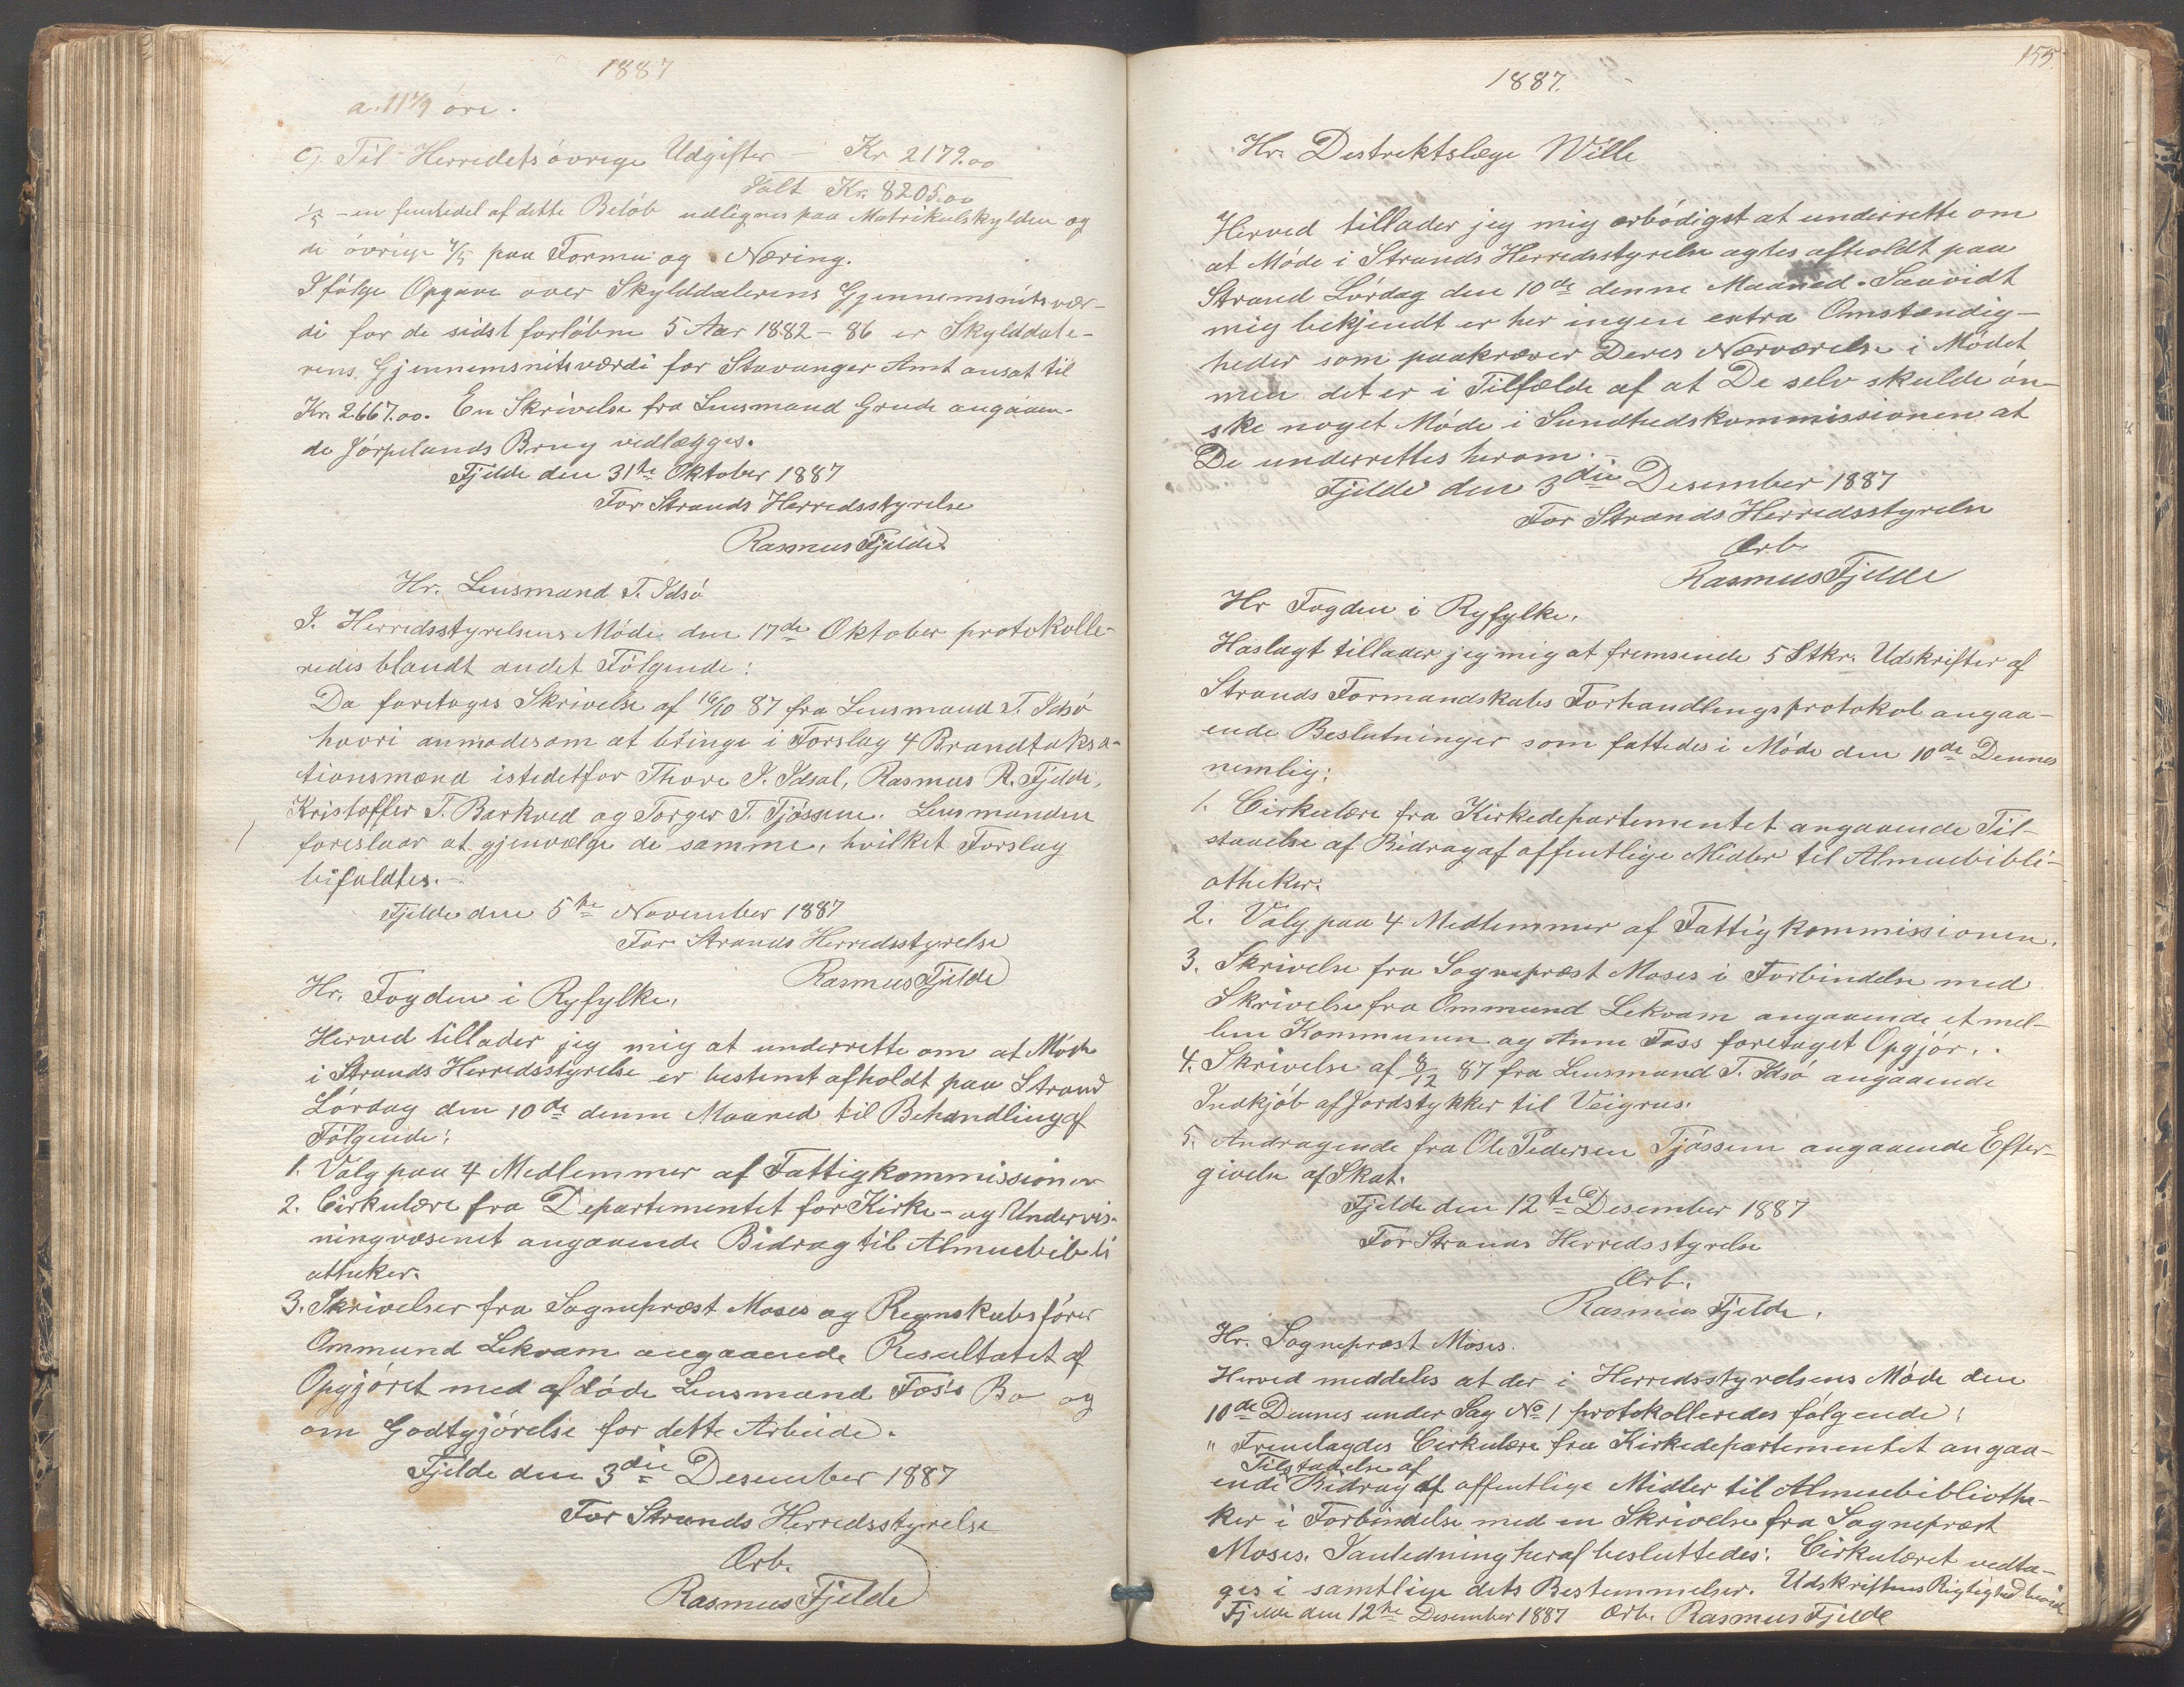 1887
a. 11 1/9 øre.
c) Til Herredets øvrige Udgifter Kr 2179.00
Ialt Kr. 8205.00
1/5 - en femtedel af dette Beløb udlignes paa Matrikulskylden og
de øvrige 4/5 paa Formue og Næring.
Ifølge Opgave over Skylddalerens Gjennemsnitsvær-
di for de sidst forløbne 5 Aar 1882-86 er Skylddale-
rens Gjennemsnitsværdi for Stavanger Amt ansat til
Kr. 2.667.00. En Skrivelse fra Lensmand Grude angaaen-
de Jørpelands Brug vedlægges.
Fjelde den 31te Oktober 1887
For Strands Herredsstyrelse
Rasmus Fjelde.
Hr. Lensmand T. Idsø
I Herredsstyrelsens Møde den 17de Oktober protokolle-
redes blandt andet Følgende:
Da foretoges Skrivelse af 16/10 87 fra Lensmand T. Idsø
hvori anmodes om at bringe i Forslag 4 Brandtaksa-
tionsmænd istedetfor Thore I. Idsal, Rasmus R. Fjelde,
Kristoffer T. Barkved og Torger T. Tjøssem. Lensmanden
foreslaar at gjenvælge de samme, hvilket Forslag
bifaldtes.-
Fjelde den 5te November 1887
For Strands Herredsstyrelse
Rasmus Fjelde
Hr. Fogden i Ryfylke.
Herved tillader jeg mig at underrette om at Møde
i Strands Herredsstyrelse er bestemt afholdt paa Strand
Lørdag den 10de denne Maaned til Behandling af
Følgende:
1. Valg paa 4 Medlemmer af Fattigkommissionen
2. Cirkulære fra Departementet for Kirke- og Undervis-
ningvæsenet angaaende Bidrag til Almuebibli
atheker.
3. Skrivelser fra Sognepræst Moses og Regnskabsfører
Ommund Lekvam angaaende Resultatet af
Opgjøret med afdøde Lensmand Fos's Bo og
om Godtgjørelse for dette Arbeide.
Fjelde den 3die Desember 1887
For Strands Herredsstyrelse
Ærb.
Rasmus Fjelde
155.
1887.
Hr. Destrektslæge Wille
Herved tillader jeg mig ærbødigst at underrette om
at Møde i Strands Herredsstyrelse agtes afholdt paa
Strand Lørdag den 10de denne Maaned. Saavidt
mig bekjendt er her ingen extra Omstændig-
heder som paakræver Deres Nærværelse i Mødet
men det er i Tilfælde af at De selv skulde øn-
ske noget Møde i Sundhedskommissionen at
De underrettes herom.-
Fjelde den 3die Desember 1887
For Strands Herredsstyrelse
Ærb
Rasmus Fjelde
Hr Fogden i Ryfylke.
Hoslagt tillader jeg mig at fremsende 5 Stkr. Udskrifter af
Strands Formandskabs Forhandlingsprotokol angaa-
ende Beslutninger som fattedes i Møde den 10de Dennes
nemlig:
1. Cirkulære fra Kirkedepartementet angaaende Til-
staaelse af Bidrag af offentlige Midler til Almuebibli-
otheker.
2. Valg paa 4 Medlemmer af Fattigkommissionen.
3. Skrivelse fra Sognepræst Moses i Forbindelse med
Skrivelse fra Ommund Lekvam angaaende et mel-
lem Kommunen og Anne Foss foretaget Opgjør.
4. Skrivelse af 8/12 87 fra Lensmand T. Idsø angaaende
Indkjøb af Jordstykker til Veigrus.
5. Andragende fra Ole Pedersen Tjøssem angaaende Efter-
givelse af Skat.
Fjelde den 12te Desember 1887
For Strands Herredsstyrelse
Ærb.
Rasmus Fjelde.
Hr. Sognepræst Moses.
Herved meddeles at der i Herredsstyrelsens Møde den
10de Dennes under Sag No 1 protokolleredes følgende:
" Fremlagdes Cirkulære fra Kirkedepartementet angaa-
Tilstaaelse af
ende Bidrag af offentlige Midler til Almuebibliothe-
ker i Forbindelse med en Skrivelse fra Sognepræst
Moses. I anledning heraf besluttedes: Cirkulæret vedta-
ges i samtlige dets Bestemmelser. Udskriftens Rigtighed bevid
Fjelde den 12te Desember 1887 Ærb. Rasmus Fjelde